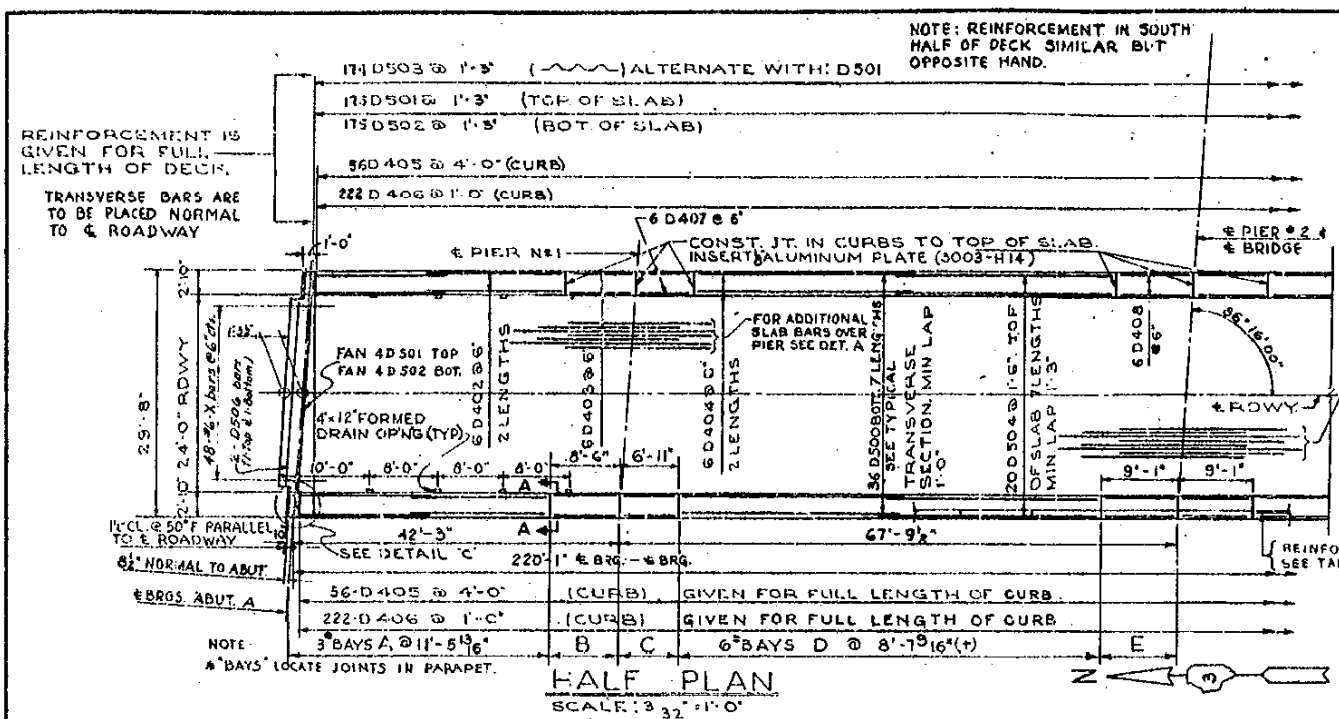 NOTE: REINFORCEMENT IN SOUTH
HALF OF DECK SIMILAR BUT
OPPOSITE HAND.
D503 @ 1'-3" ( ) ALTERNATE WITH: D501
175 D501 @ 1'-3" (TOP OF SLAB)
175 D502 @ 1'-3" (BOT. OF SLAB)
56 D405 @ 4'-0" (CURB)
222 D406 @ 1'-0" (CURB)
REINFORCEMENT IS
GIVEN FOR FULL
LENGTH OF DECK.
TRANSVERSE BARS ARE
TO BE PLACED NORMAL
TO ℄ ROADWAY
1'-0"
6 D407 @ 6"
℄ PIER Nº1
CONST. JT. IN CURBS TO TOP OF SLAB.
INSERT ALUMINUM PLATE (3003-H14)
℄ PIER #2 &
℄ BRIDGE
2'-10"
24'-0" RDWY
2'-10"
29'-8"
48-#6-X bars @ 6" ctr.
D506 bars
FAN 4 D501 TOP
FAN 4 D502 BOT.
4"x12" FORMED
DRAIN OP'NG (TYP)
6 D402 @ 6"
2 LENGTHS
6 D403 @ 6"
FOR ADDITIONAL
SLAB BARS OVER
PIER SEE DET. A
6 D404 @ 6"
2 LENGTHS
36 D500 BOTT. 7 LENGTHS
SEE TYPICAL
TRANSVERSE
SECTION. MIN LAP
1'-0"
20 D504 @ 1'-6" TOP
OF SLAB 7 LENGTHS
MIN. LAP 1'-3"
6 D408
@ 6"
86°16'00"
℄ RDWY
10'-0" 8'-0" 8'-0" 8'-0" 8'-6" 6'-11"
9'-1" 9'-1"
A
A
CL. @ 50°F PARALLEL
TO ℄ ROADWAY
42'-3"
67'-9½"
SEE DETAIL 'C'
220'-1" ℄ BRG. - ℄ BRG.
8½" NORMAL TO ABUT.
℄ BRGS. ABUT. A
REINFO
SEE TA
56-D405 @ 4'-0" (CURB) GIVEN FOR FULL LENGTH OF CURB
222-D406 @ 1'-0" (CURB) GIVEN FOR FULL LENGTH OF CURB
3 BAYS A @ 11'-5 13/16" B C 6 BAYS D @ 8'-7 9/16" (+) E
NOTE:
"BAYS" LOCATE JOINTS IN PARAPET.
HALF PLAN
SCALE: 3/32" = 1'-0"
N
3